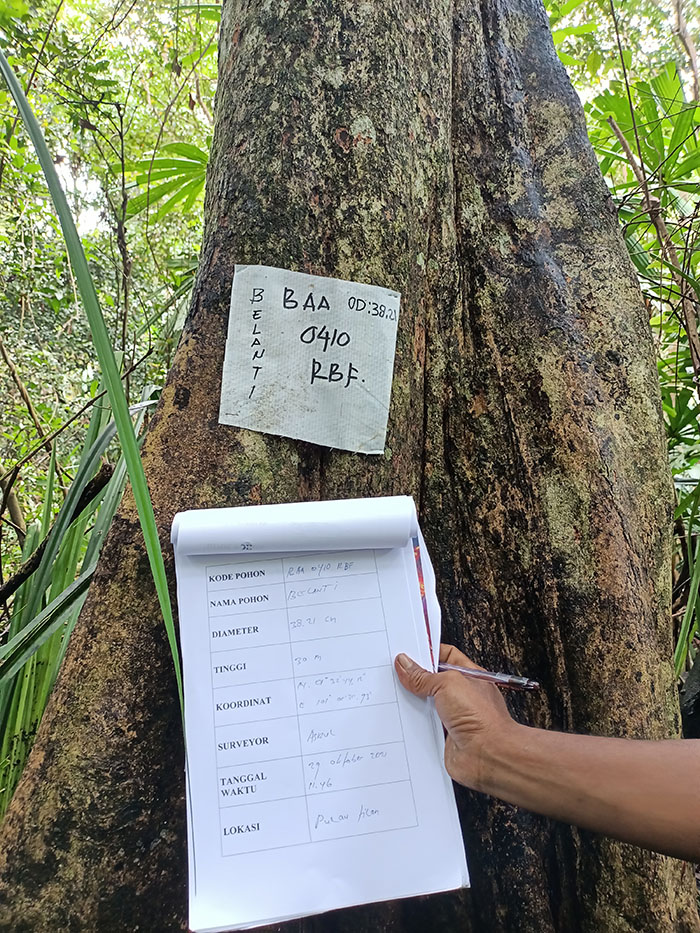 BELANTI
BAA OD:38.21
0410
RBF.
KODE POHON BAA 0410 RBF
NAMA POHON BELANTI
DIAMETER 38.21 cm
TINGGI 30 m
KOORDINAT
SURVEYOR
TANGGAL 29 Oktober
WAKTU 11.46
LOKASI Pulau